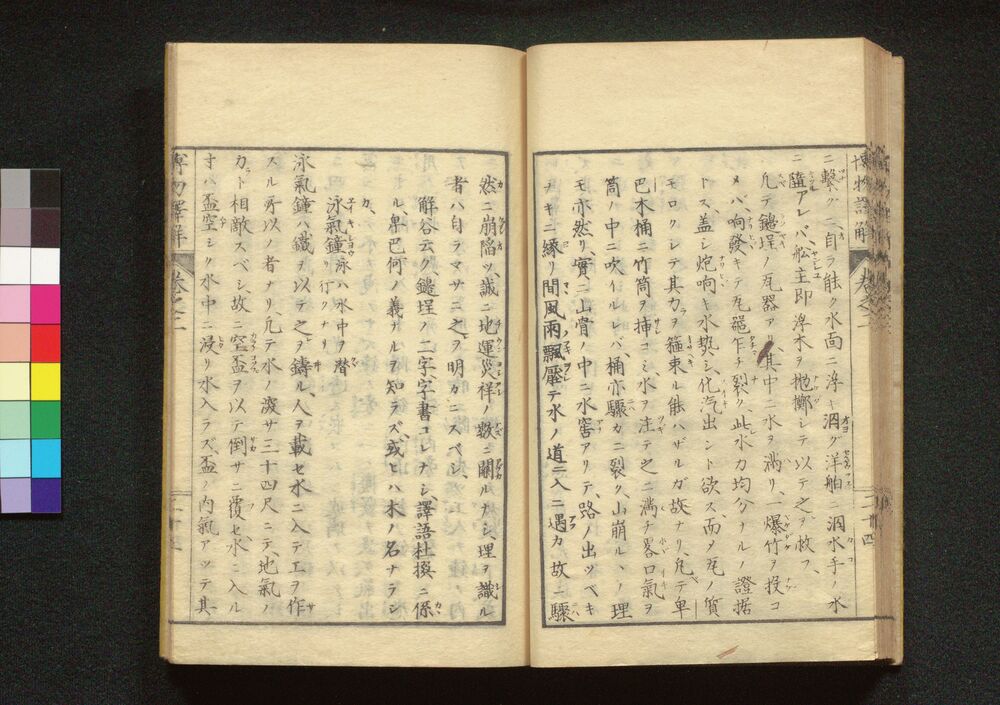 博物譯解 卷之二 二十四
ニ繫グニ、自ラ能ク水面ニ浮キ泅グ、洋舶ニ泅水手ノ水
ニ隨アレバ、舩主即浮木ヲ抛擲シテ以テ之ヲ救フ、
凡テ鑓埕ノ瓦器アリ、其中ニ水ヲ満リ、一爆竹ヲ投コ
メバ、响發キテ瓦器乍チ裂ク、此水力均分ナルノ證據
トス、蓋シ炮响キ水𤍠シ、化汽出ント欲ス、而メ瓦ノ質
モロクシテ其力ヲ箍束ル能ハザルガ故ナリ、凡テ車
巴木桶ニ竹筒ヲ挿コミ水ヲ注テ之ニ満チ畧口氣ヲ
筒ノ中ニ吹イルレバ、桶亦驟カニ裂ク、山崩ル丶ノ理
モ亦然リ、實ニ山骨ノ中ニ水窖アリテ、路ノ出ツベキ
ナキニ縁リ間風雨飄壓テ水ノ道ニ入ニ遇カ故ニ驟
然ニ崩陷ツ、誠ニ地運災祥ノ数ニ關ルナシ、理ヲ識ル
者ハ自ラマサニ之ヲ明カニスベシ、
解谷云ク、鑓埕ノ二字、字書コレナシ、譯語杜撰ニ係
ル、卑巴何ノ義ナルヲ知ラズ、或ヒハ木ノ名ナラン
カ、
泳氣鐘 泳ハ水中ヲ潜リ行クナリ
泳氣鐘ハ鐵ヲ以テ之ヲ鑄ル、人ヲ載セ水ニ入テ工ヲ作
スル所以ノ者ナリ、凡テ水ノ深サ三十四尺ニテ、地氣ノ
力ト相敵スベシ、故ニ空盃ヲ以テ倒サニ覆セ水ニ入ル
オハ盃空シク水中ニ浸リ水入ラズ、盃ノ内氣アツテ其
博物譯解 卷之二